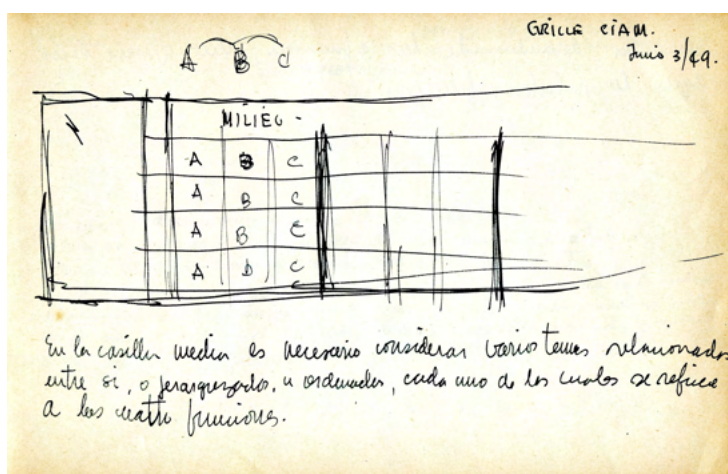 GRILLE CIAM.
Junio 3/49.
A B C
MILIEU -
A B C
A B C
A B C
A B C
En la casilla media es necesario considerar varios temas relacionados
entre si, o jerarquizados, u ordenados, cada uno de los cuales se refiere
a las cuatro funciones.